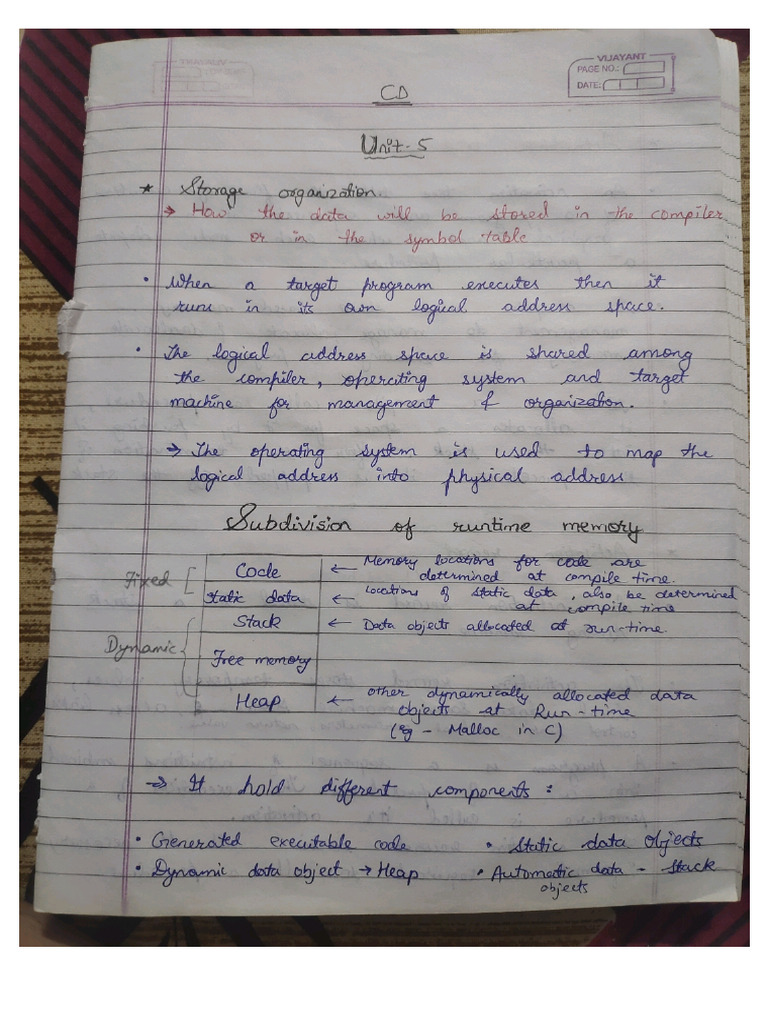 VIJAYANT
PAGE NO.:
DATE:
CD
Unit-5
* Storage organization
→ How the data will be stored in the compiler
or in the symbol table
• When a target program executes then it
runs in its own logical address space.
• The logical address space is shared among
the compiler, operating system and target
machine for management & organization.
→ The operating system is used to map the
logical address into physical address
Subdivision of runtime memory
Fixed
Code ← Memory locations for code are
determined at compile time.
Static data ← Locations of static data, also be determined
at compile time
Dynamic
Stack ← Data objects allocated at run-time.
Free memory
Heap ← other dynamically allocated data
objects at Run-time
(eg - Malloc in C)
→ It hold different components:
• Generated executable code • Static data objects
• Dynamic data object → Heap • Automatic data - Stack
objects